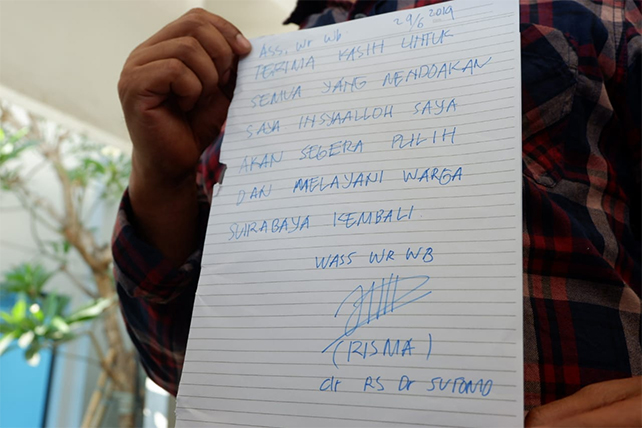 29/6 2019
Ass. Wr Wb
TERIMA KASIH UNTUK
SEMUA YANG MENDOAKAN
SAYA INSYAALLOH SAYA
AKAN SEGERA PULIH
DAN MELAYANI WARGA
SURABAYA KEMBALI.
WASS WR WB
(RISMA)
dr RS Dr SUTOMO